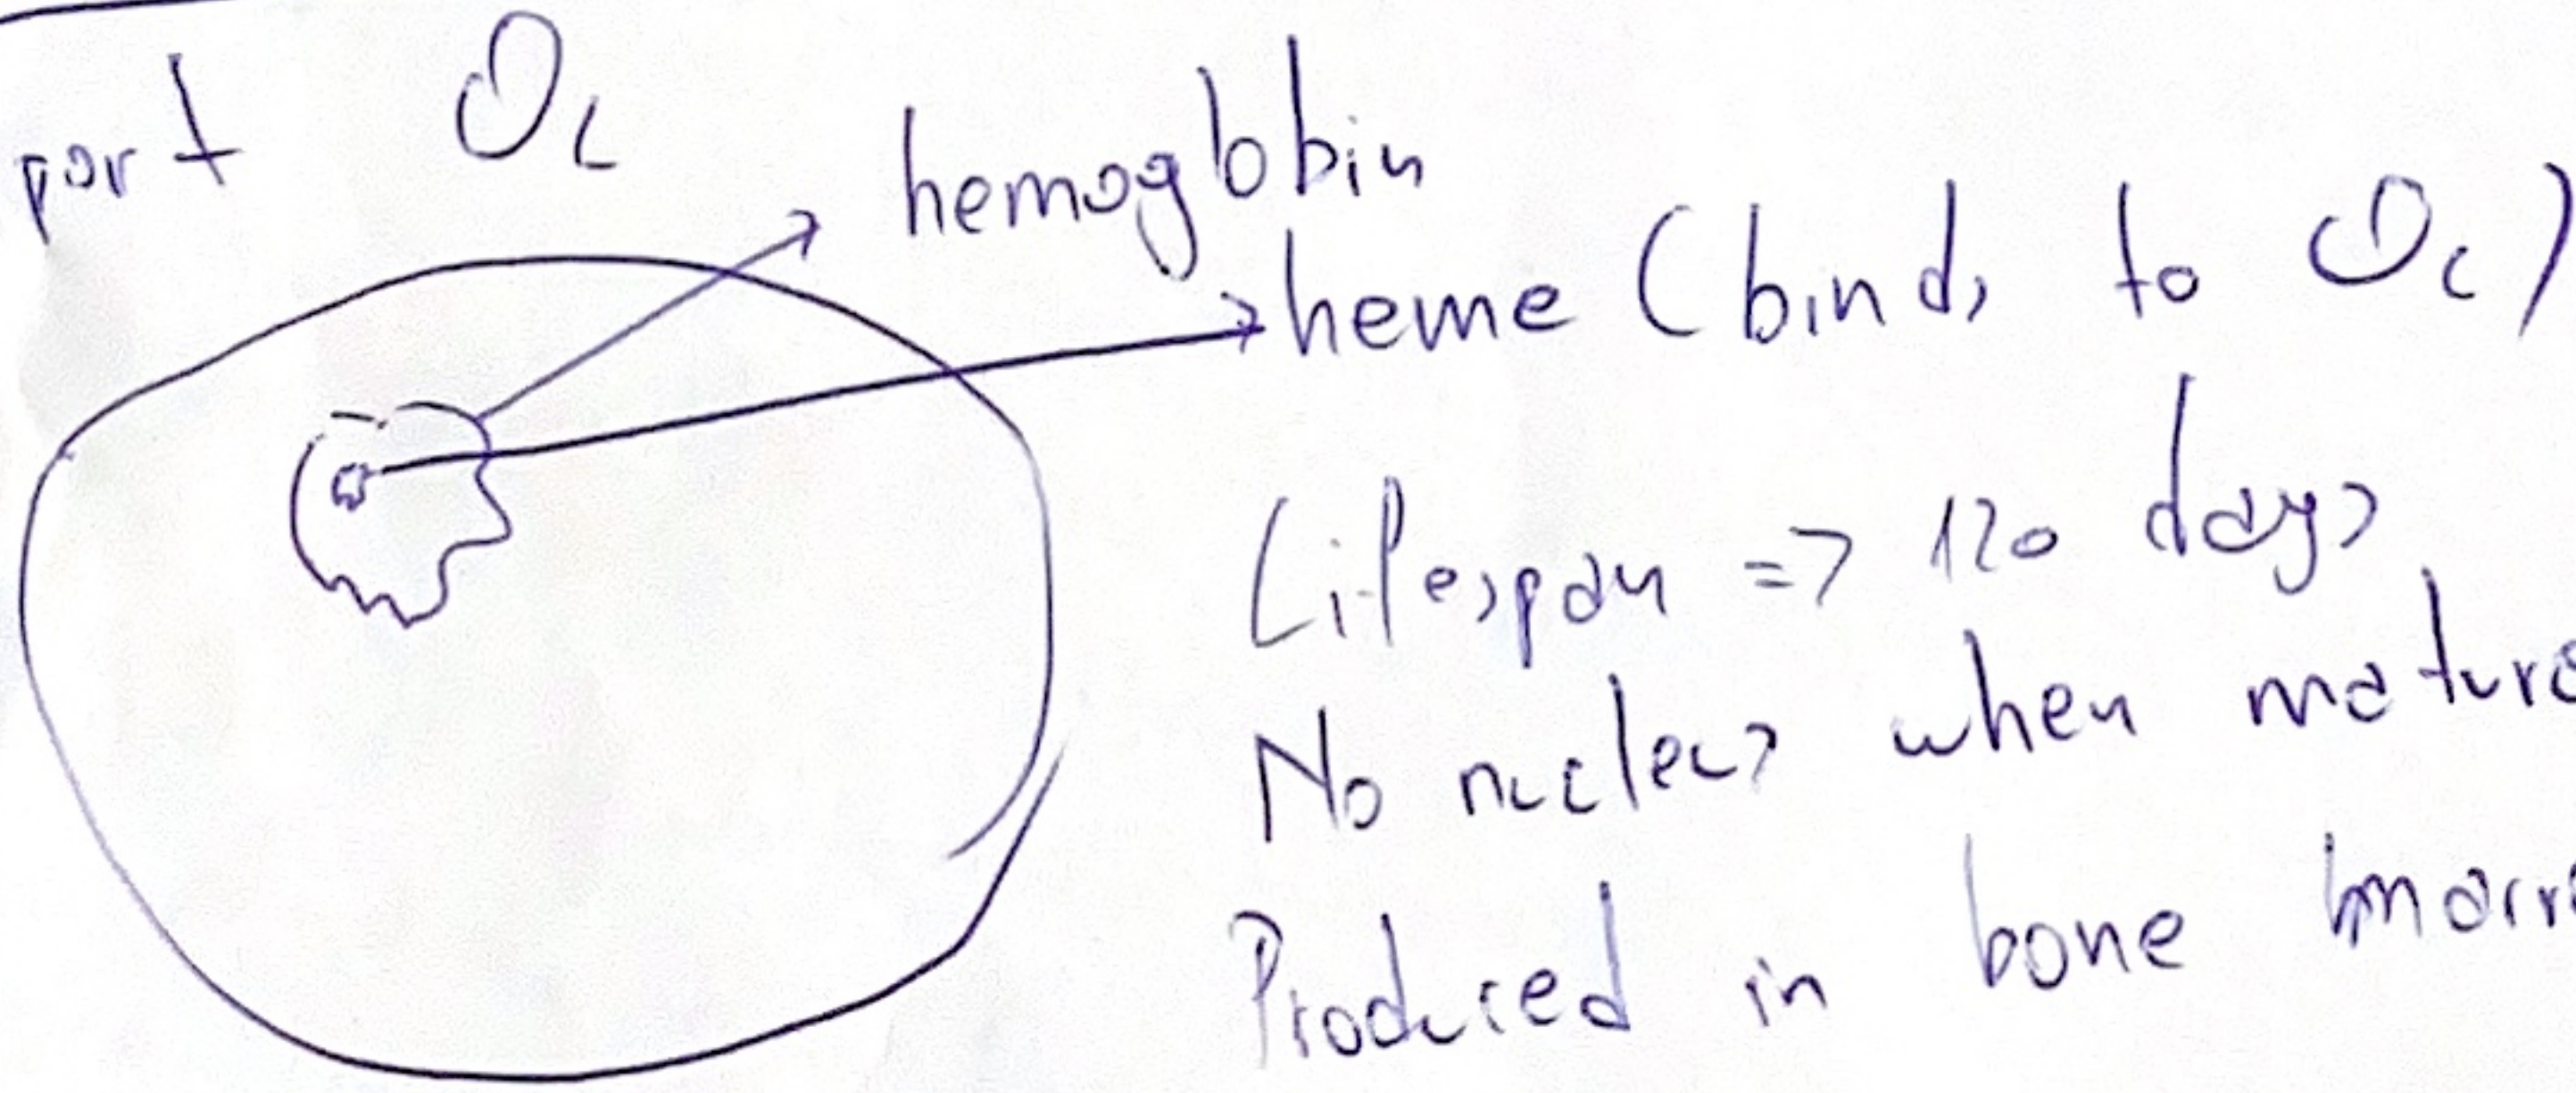 port O₂
hemoglobin
heme (binds to O₂)
Lifespan => 120 days
No nucleus when mature
Produced in bone marro